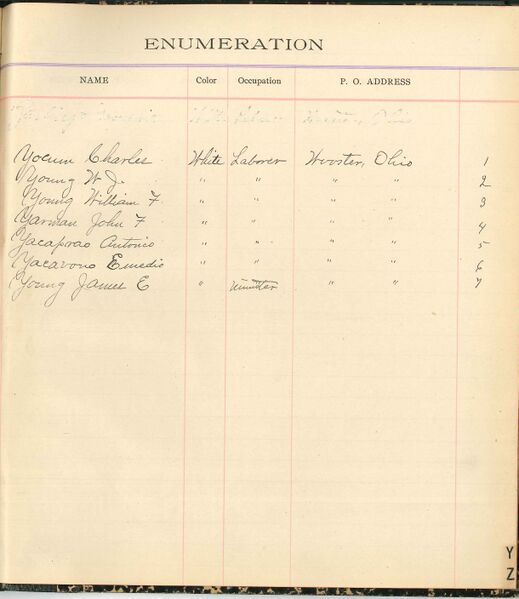 ENUMERATION
NAME Color Occupation P. O. ADDRESS
Wooster, Ohio
Yocum Charles White Laborer Wooster, Ohio 1
Young W J. " " " " 2
Young William F. " " " " 3
Yarman John F " " " " 4
Yacaprao Antonio " " " " 5
Yacavono Emedio " " " " 6
Young James E " " " 7
Y
Z